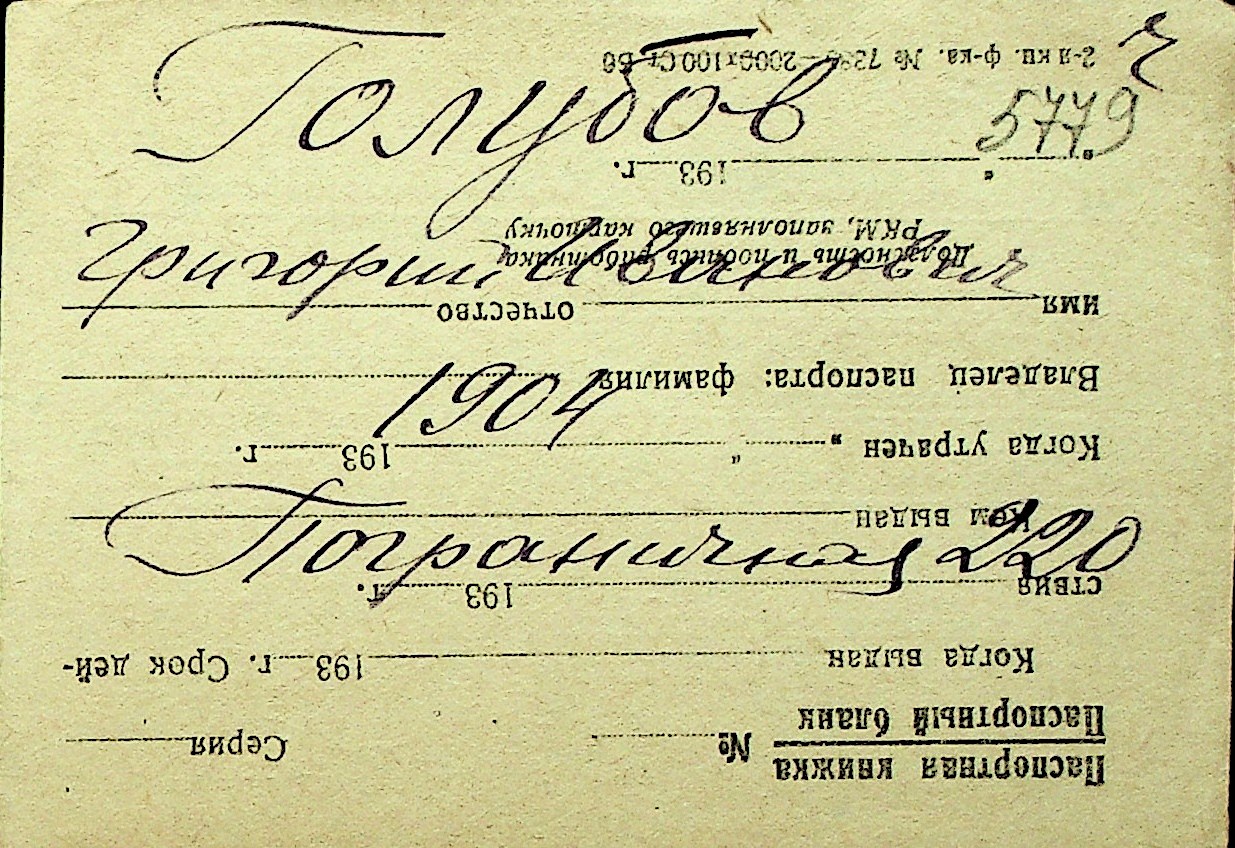 Голубов
Григорий Иванович
1904
Пограничная 220
ч
5779
Паспортная книжка
Паспортный бланк
№ Серия
Когда выдан 193 г. Срок дей-
ствия 193 г.
Кем выдан
Когда утрачен „ “ 193 г.
Владелец паспорта: фамилия
имя отчество
Должность и подпись работника
РКМ, заполнявшего карточку
„ “ 193 г.
2-я кн. ф-ка. № 2000х100 Ст